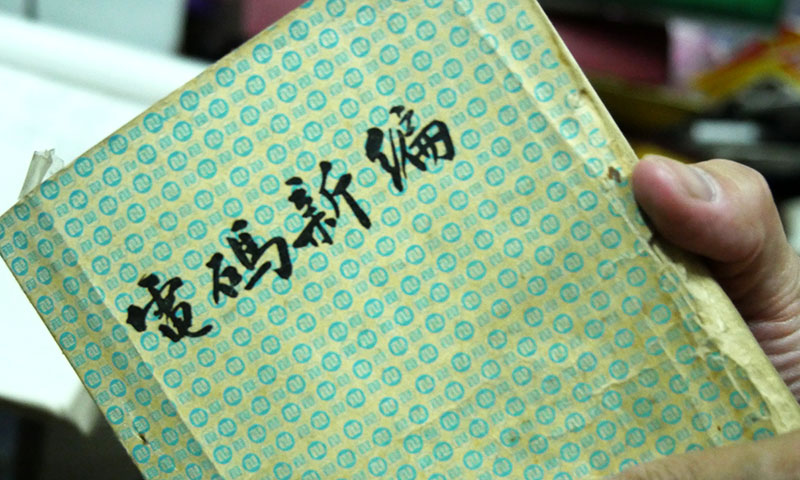 電碼新編